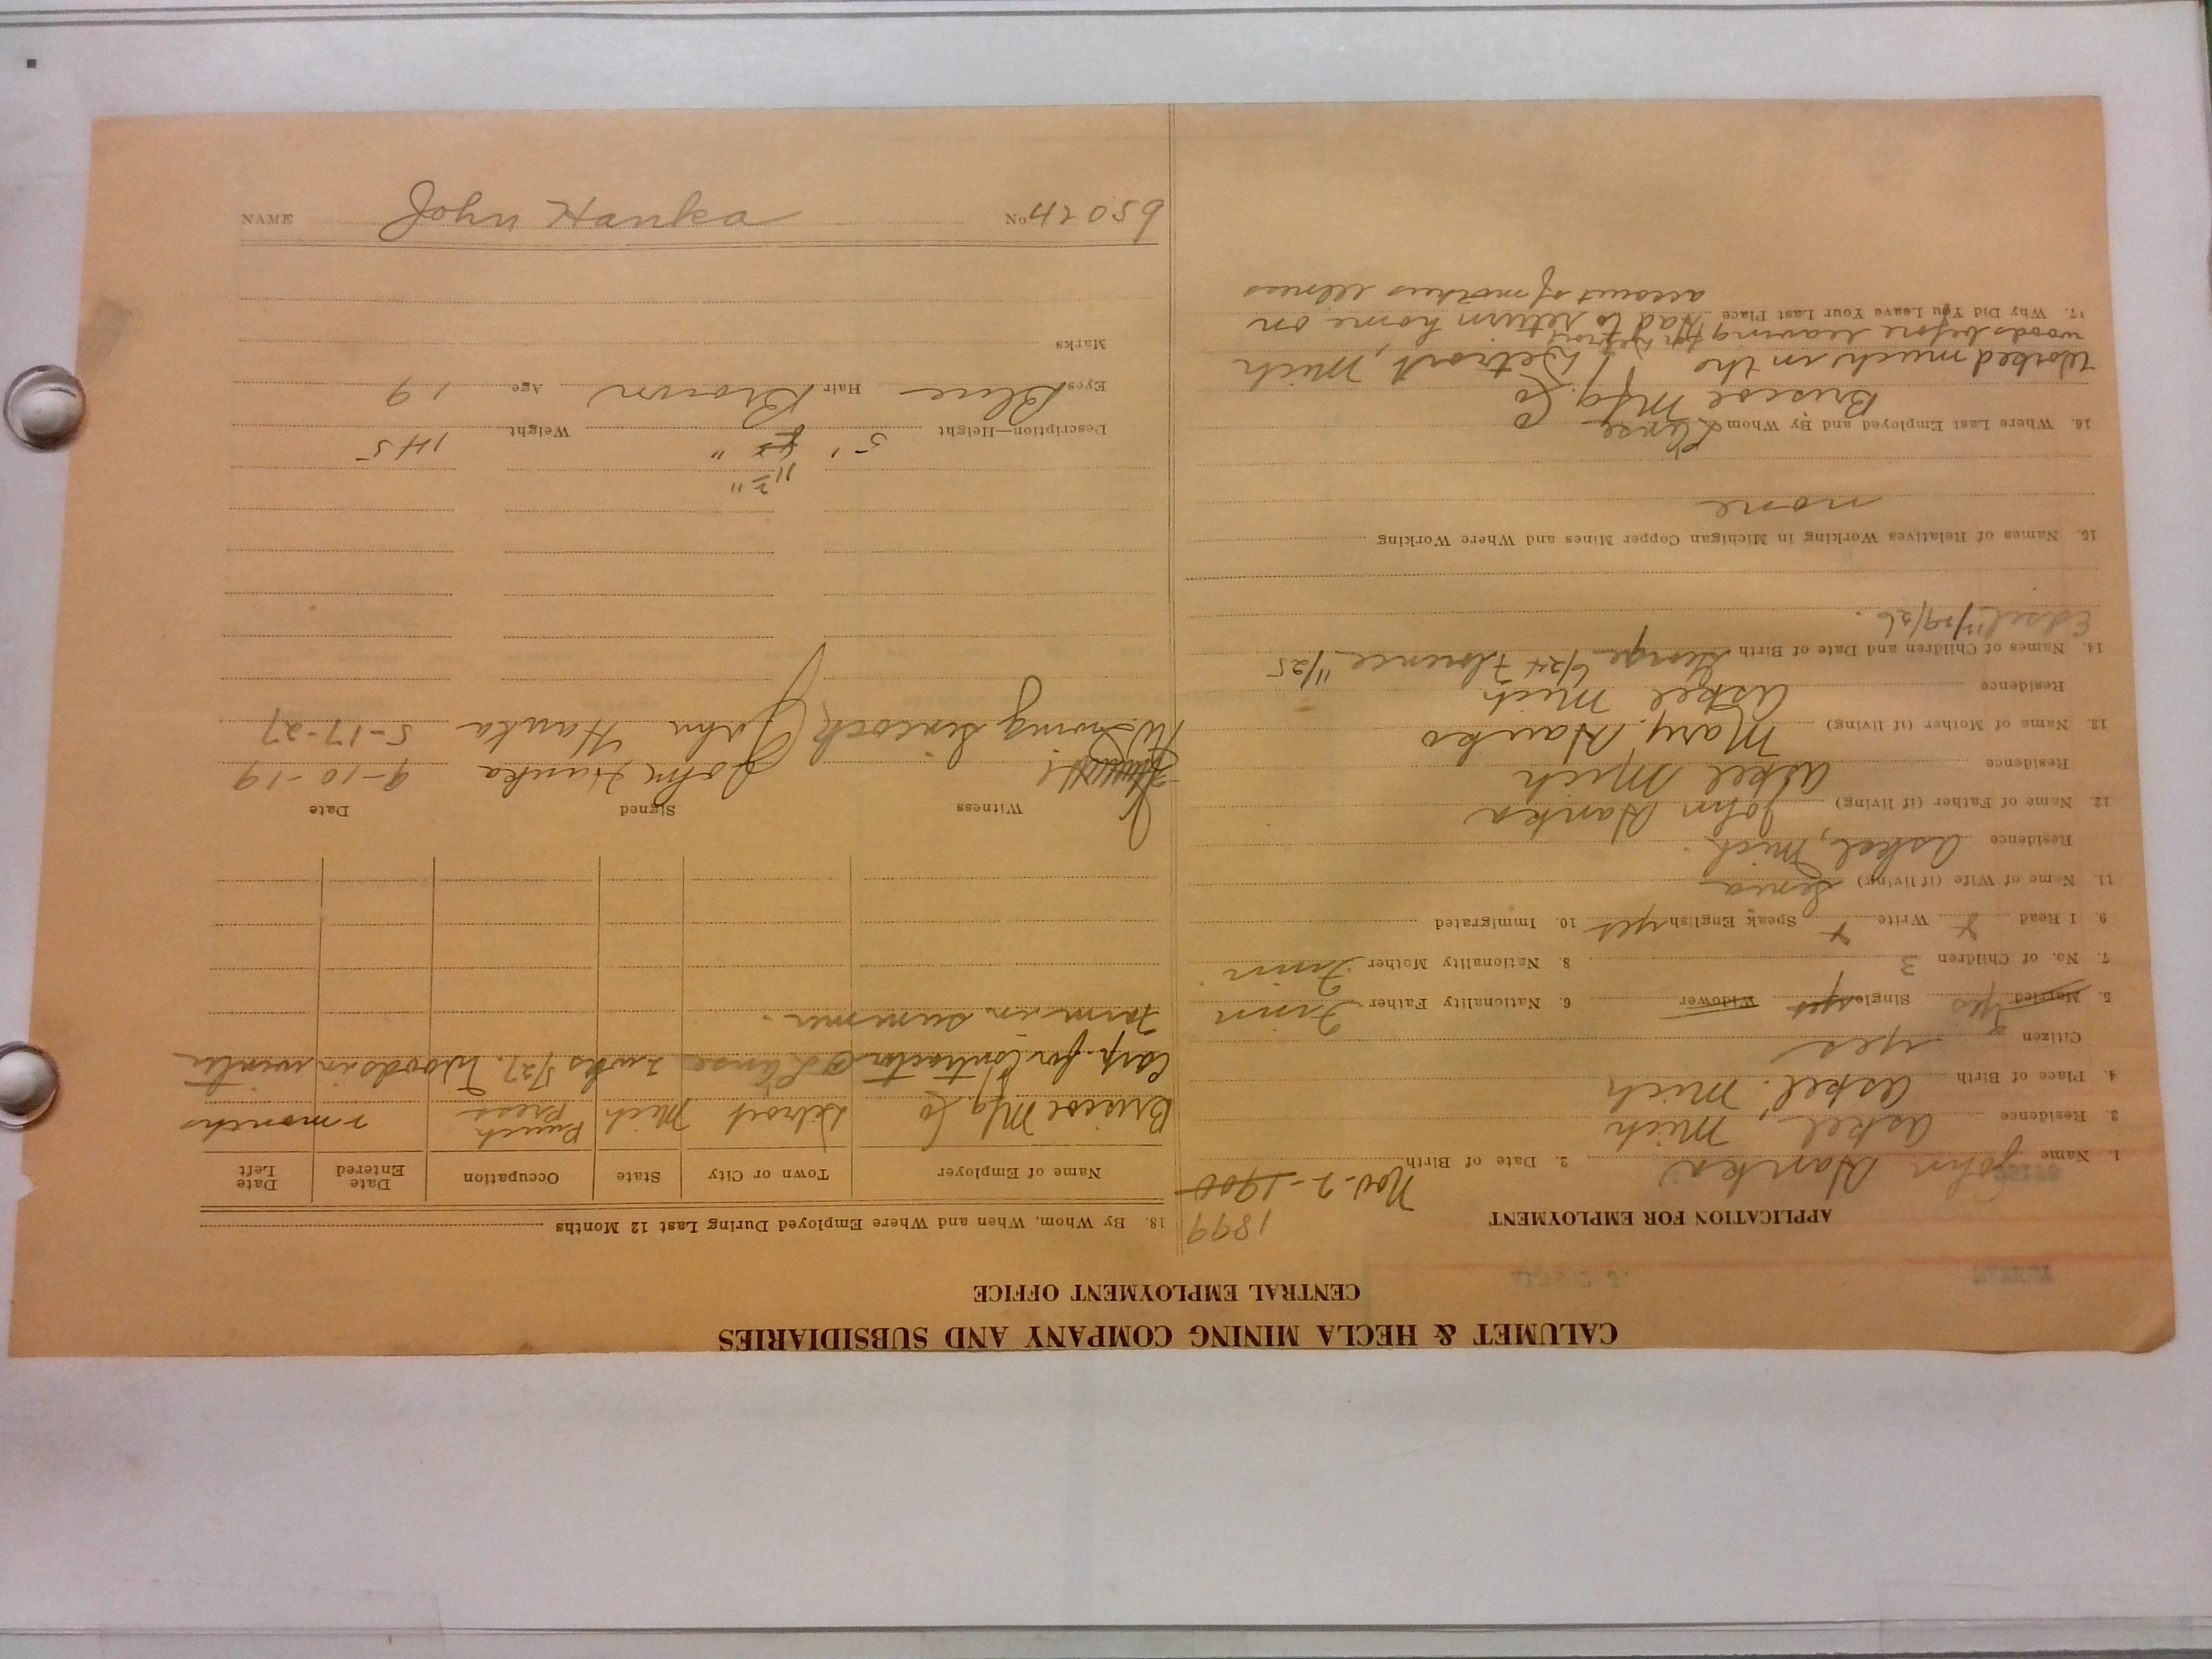 CALUMET & HECLA MINING COMPANY AND SUBSIDIARIES
CENTRAL EMPLOYMENT OFFICE
APPLICATION FOR EMPLOYMENT
1899
1. Name John Hanka 2. Date of Birth Nov-2-1900
3. Residence Askel, Mich
4. Place of Birth Askel, Mich
Citizen yes
5. Married yes Single yes Widower 6. Nationality Father Finn
7. No. of Children 3 8. Nationality Mother Finn
9. I Read x Write x Speak English yes 10. Immigrated
11. Name of Wife (if living) Lena
Residence Askel, Mich.
12. Name of Father (if living) John Hanka
Residence Askel Mich
13. Name of Mother (if living) Mary Hanka
Residence Askel Mich
14. Names of Children and Date of Birth George 6/24 Florence 11/25
Edsel 11/29/26.
15. Names of Relatives Working in Michigan Copper Mines and Where Working
none
16. Where Last Employed and By Whom L'anse
Briscoe Mfg. Co
Worked much in the Detroit, Mich
woods before leaving for Detroit
17. Why Did You Leave Your Last Place Had to return home on
account of mothers illness
18. By Whom, When and Where Employed During Last 12 Months
Name of Employer Town or City State Occupation Date Entered Date Left
Briscoe Mfg Co Detroit Mich Punch Press 2 months
Carp. for Contractor @ L'anse 2 wks 5/27. Woods in winter
Farm in summer.
Witness Signed Date
John Hanka 9-10-19
W. Irving Sincock John Hanka 5-17-27
11 1/2"
Description—Height 5' Weight 145
Eyes Blue Hair Brown Age 19
Marks
NAME John Hanka No.